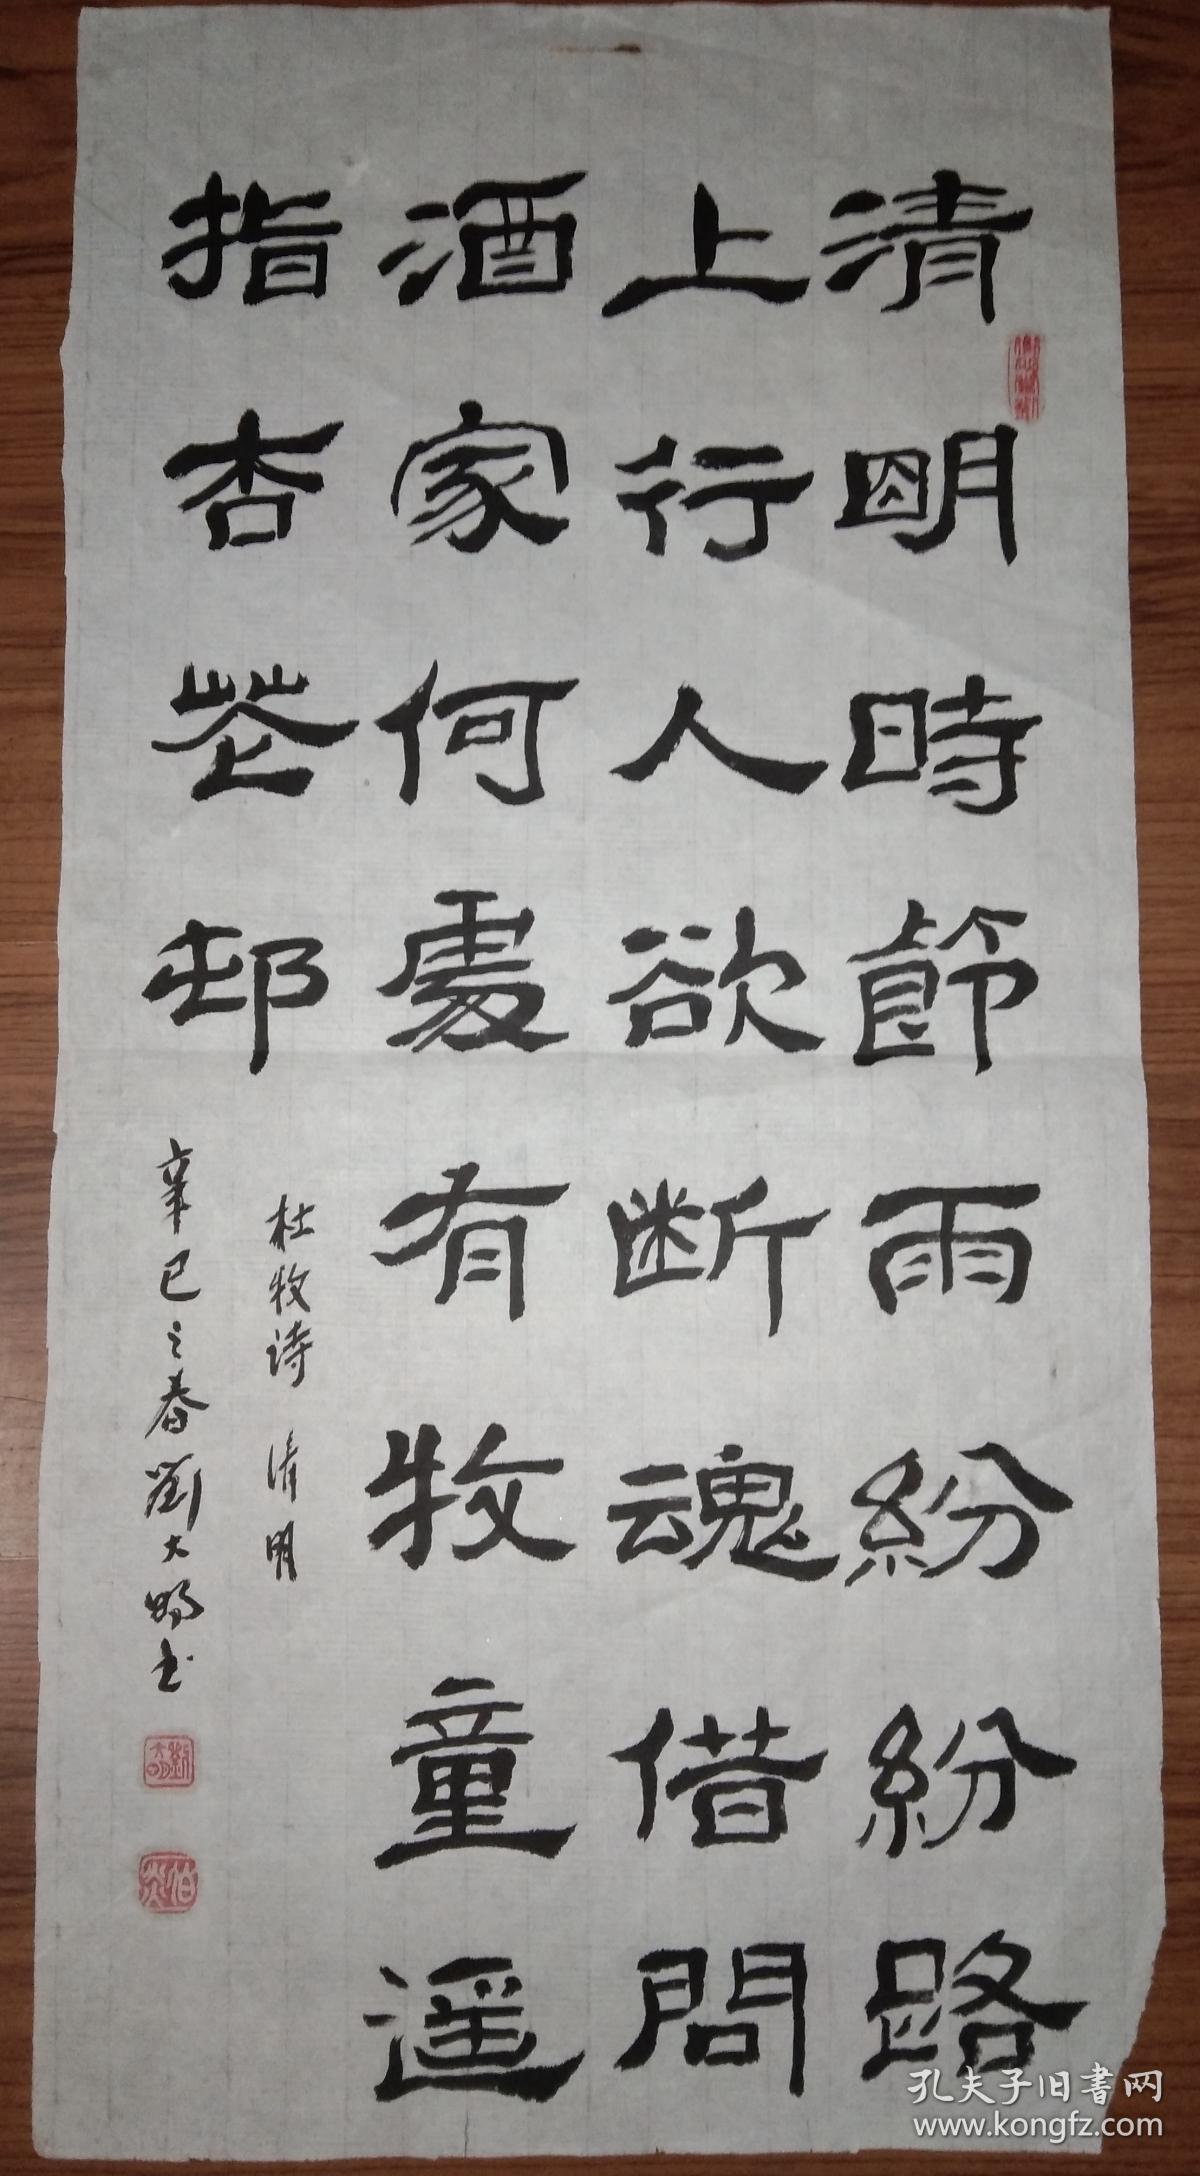 清明時節雨紛紛路
上行人欲断魂借問
酒家何處有牧童遥
指杏花邨
杜牧诗 清明
辛巳之春劉大明书
孔夫子旧書网
www.kongfz.com